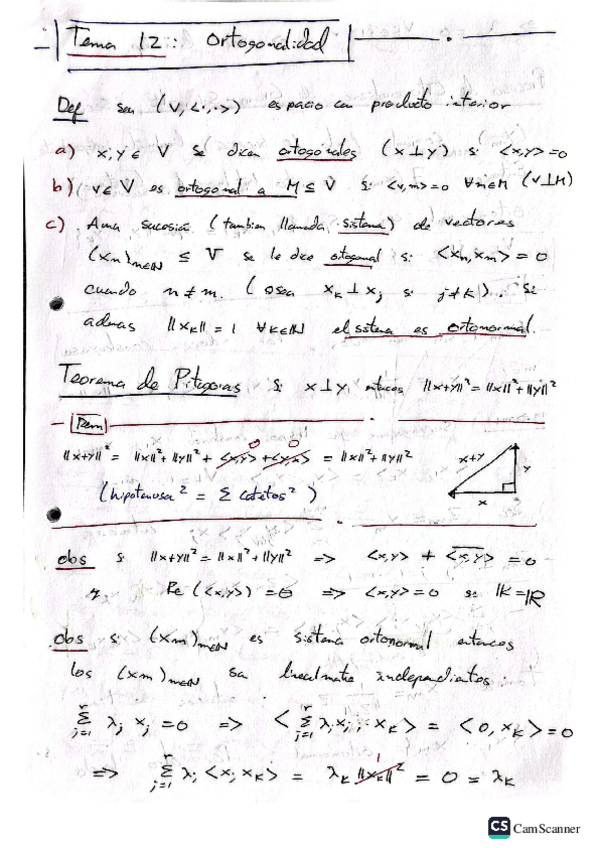 Tema 12:: Ortogonalidad
Def sea (V, <·,·>) espacio con producto interior
a) x,y ∈ V se dicen ortogonales (x ⊥ y) si <x,y> = 0
b) v ∈ V es ortogonal a M ≤ V si <v,m> = 0 ∀m∈M (v ⊥ M)
c) Una sucesión (tambien llamada sistema) de vectores
(xm)m∈ℕ ≤ V se le dice ortogonal si <xn, xm> = 0
cuando n ≠ m. (osea xk ⊥ xj si j ≠ k). Si
ademas ||xk|| = 1 ∀k∈ℕ el sistema es ortonormal.
Teorema de Pitagoras Si x ⊥ y, entonces ||x+y||² = ||x||² + ||y||²
Dem
||x+y||² = ||x||² + ||y||² + <x,y> + <y,x> = ||x||² + ||y||²
0 0
(hipotenusa² = Σ catetos²)
x+y
y
x
obs si ||x+y||² = ||x||² + ||y||² => <x,y> + <x,y>‾ = 0
y Re(<x,y>) = 0 => <x,y> = 0 si 𝕂 = ℝ
obs si (xm)m∈ℕ es sistema ortonormal entonces
los (xm)m∈ℕ son linealmente independientes:
Σ_{j=1}^{r} λj xj = 0 => <Σ_{j=1}^{r} λj xj, xk> = <0, xk> = 0
=> Σ_{j=1}^{r} λj <xj xk> = λk ||xk||² = 0 = λk
1
CS CamScanner